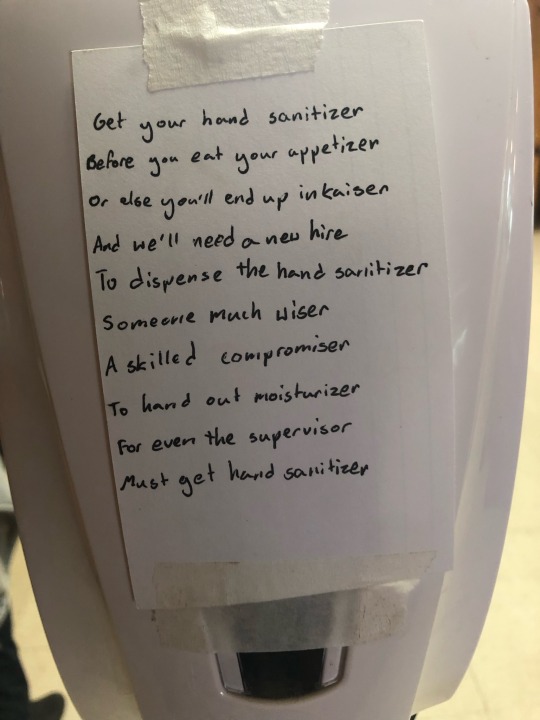 Get your hand sanitizer
Before you eat your appetizer
Or else you'll end up in kaiser
And we'll need a new hire
To dispense the hand sanitizer
Someone much wiser
A skilled compromiser
To hand out moisturizer
For even the supervisor
Must get hand sanitizer